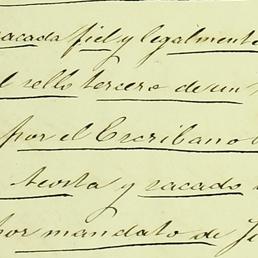 sacada fiel y legalmente
sello tercero de un
por el Escribano
Acosta y sacado
por mandato de